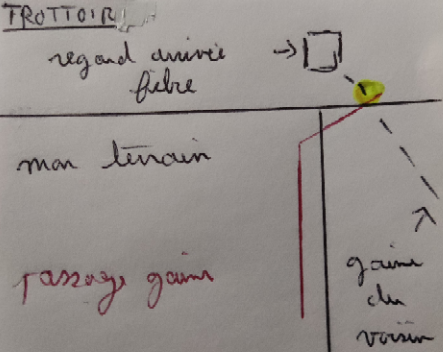 TROTTOIR
regard arrivée
fibre
mon terrain
passage gaine
gaine
du
voisin